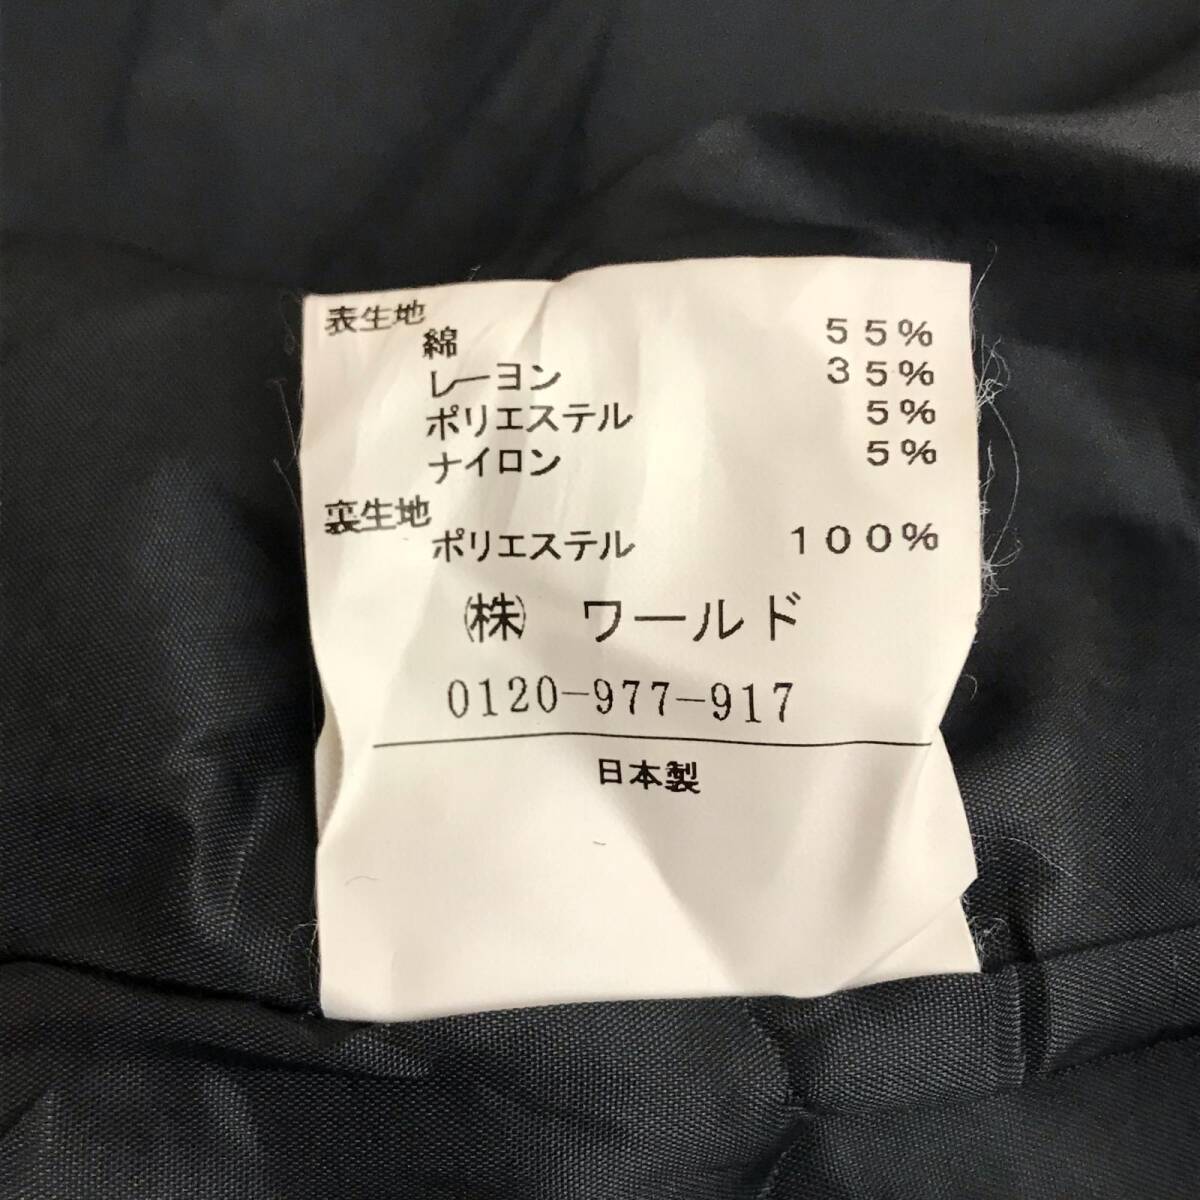 表生地
綿 55%
レーヨン 35%
ポリエステル 5%
ナイロン 5%
裏生地
ポリエステル 100%
㈱ ワールド
0120-977-917
日本製